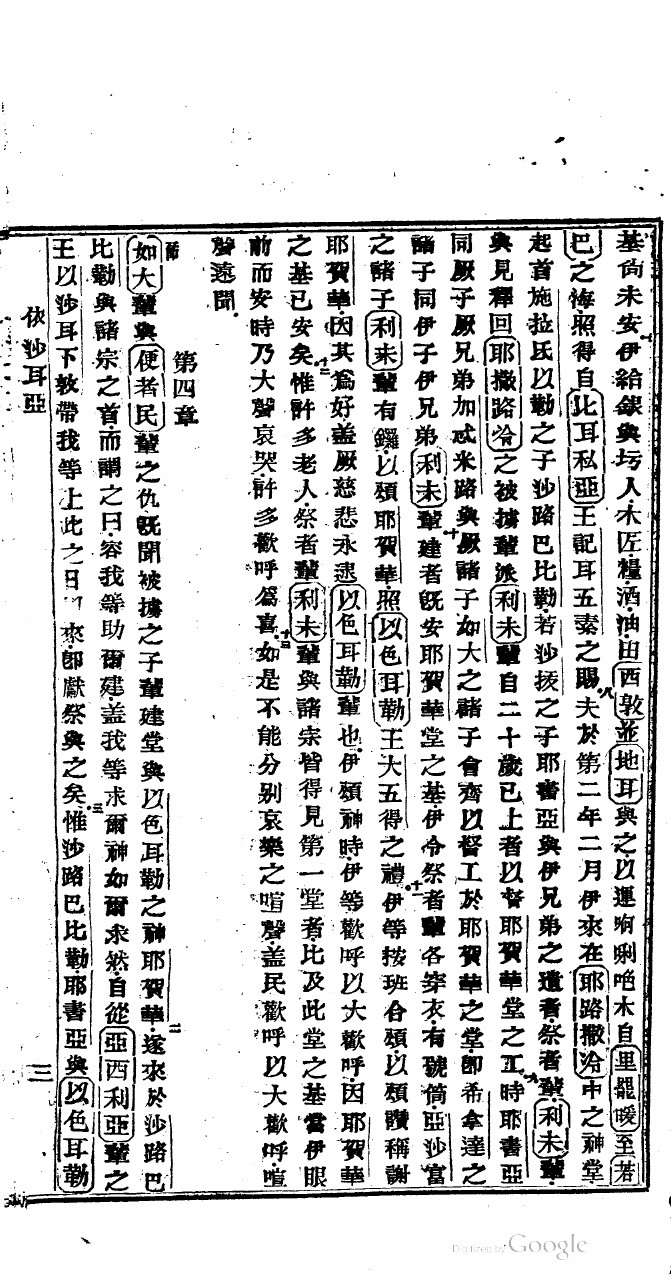 基尚未安伊給銀與圬人木匠糧酒油田西敦並地耳與之以運啊唎吔木自里罷暖至若
巴之悔照得自比耳私亞王記耳五素之賜夫於第二年二月伊來在耶路撒冷中之神堂
起首施拉氐以勒之子沙路巴比勒若沙拔之子耶書亞與伊兄弟之遺者祭者輩利未輩
與見釋回耶撒路冷之被擄輩派利未輩自二十歲已上者以督耶賀華堂之工時耶書亞
同厥子厥兄弟加忒米路與厥諸子如大之諸子會齊以督工於耶賀華之堂即希拿達之
諸子同伊子伊兄弟利未輩建者旣安耶賀華堂之基伊令祭者輩各穿衣有號筒亞沙富
之諸子利未輩有鑼以頌耶賀華照以色耳勒王大五得之禮伊等按班合頌以頌讚稱謝
耶賀華因其爲好盖厥慈悲永遠以色耳勒輩也伊頌神時伊等歡呼以大歡呼因耶賀華
之基已安矣惟許多老人祭者輩利未輩與諸宗皆得見第一堂者比及此堂之基當伊眼
前而安時乃大聲哀哭許多歡呼爲喜如是不能分別哀樂之喧聲盖民歡呼以大歡呼喧
聲遠聞
第四章
如大輩與便者民輩之仇旣聞被擄之子輩建堂與以色耳勒之神耶賀華遂來於沙路巴
比勒與諸宗之首而謂之曰容我等助爾建盖我等求爾神如爾求然自從亞西利亞輩之
王以沙耳下敦帶我等上此之日來即獻祭與之矣惟沙路巴比勒耶書亞與以色耳勒
依沙耳亞
三
Digitized by Google